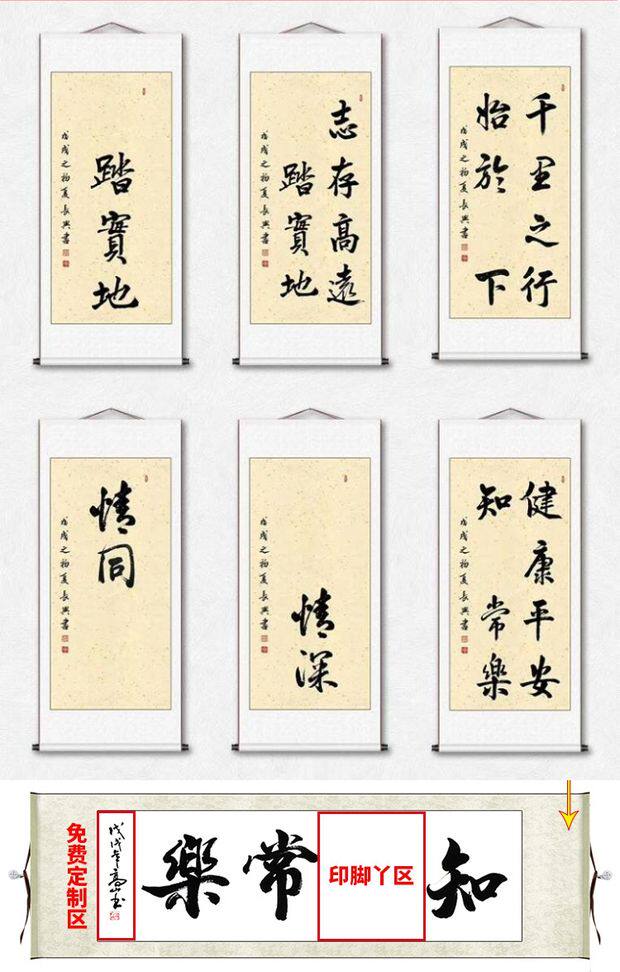 踏實地
戊戌之初夏長興書
志存高遠
踏實地
戊戌之初夏長興書
千里之行
始於下
戊戌之初夏長興書
情同
戊戌之初夏長興書
情深
戊戌之初夏長興書
健康平安
知常樂
戊戌之初夏長興書
知
印脚丫区
常樂
戊戌年高山书
免费定制区